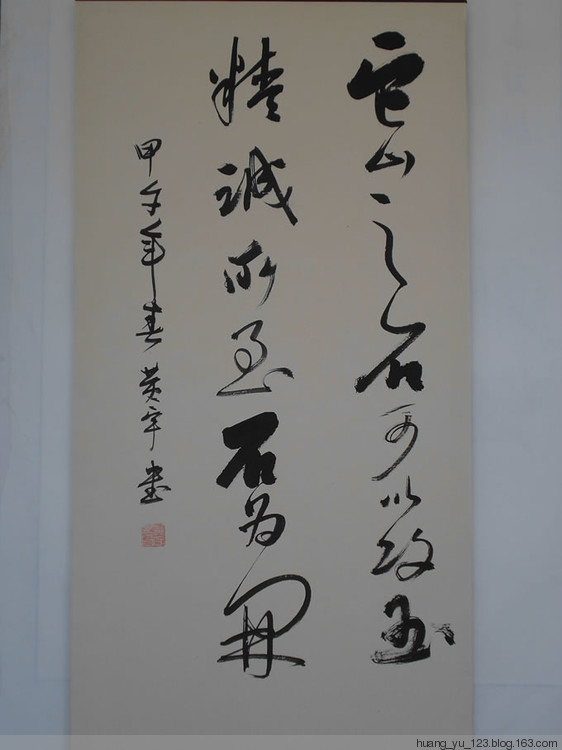 它山之石可以攻玉
精诚所至石为開
甲午年春黄宇書
huang_yu_123.blog.163.com